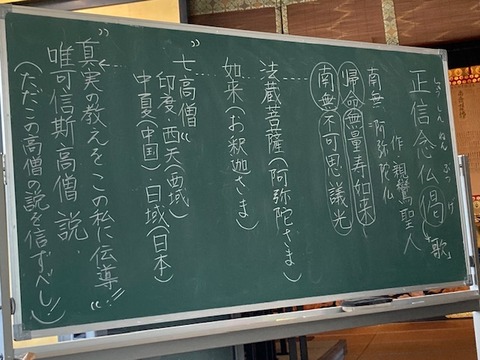 しょうしんねんぶつげ
正信念仏偈「歌」
作 親鸞聖人
南無阿弥陀仏
帰命無量寿如来
南無不可思議光
法蔵菩薩(阿弥陀さま)
如来(お釈迦さま)
"七高僧"
印度 西天(西域)
中夏(中国) 日域(日本)
"真実の教えをこの私に伝導"!!
唯可信斯高僧説.
(ただこの高僧の説を信ずべし!)